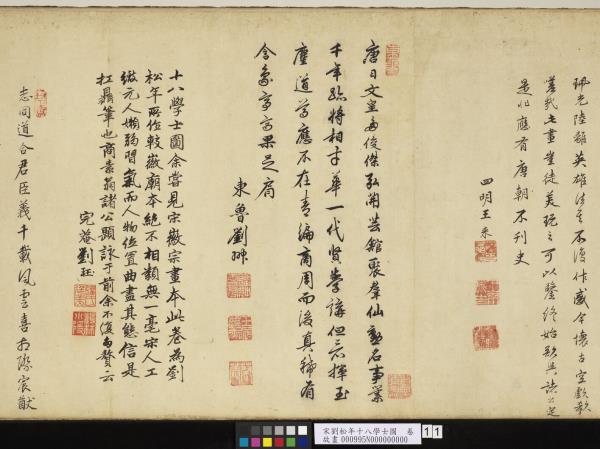 珮光陸離英雄往矣不須作感今懷古空歔欷
畫豈徒美玩之可以鑒終始歌與諸公定
是非應有唐朝不刊史
四明王
唐日文皇好俊傑弘開芸館聚羣仙勳名事業
千年跡將相才華一代賢講但知揮玉
麈道應不在青編商周而後真稀有
今象高果足肩
東魯劉珝
十八學士圖余嘗見宋徽宗畫本此卷為劉
松年所位較徽廟本絕不相類無一毫宋人工
緻元人嬾弱習氣而人物位置曲盡其態信是
扛鼎筆也商素菴諸公題詠于前余不復為贅云
完菴劉珏
志同道合君臣義千載風雲喜相際宸猷
宋劉松年十八學士圖 卷
故畫 000995N000000000
11